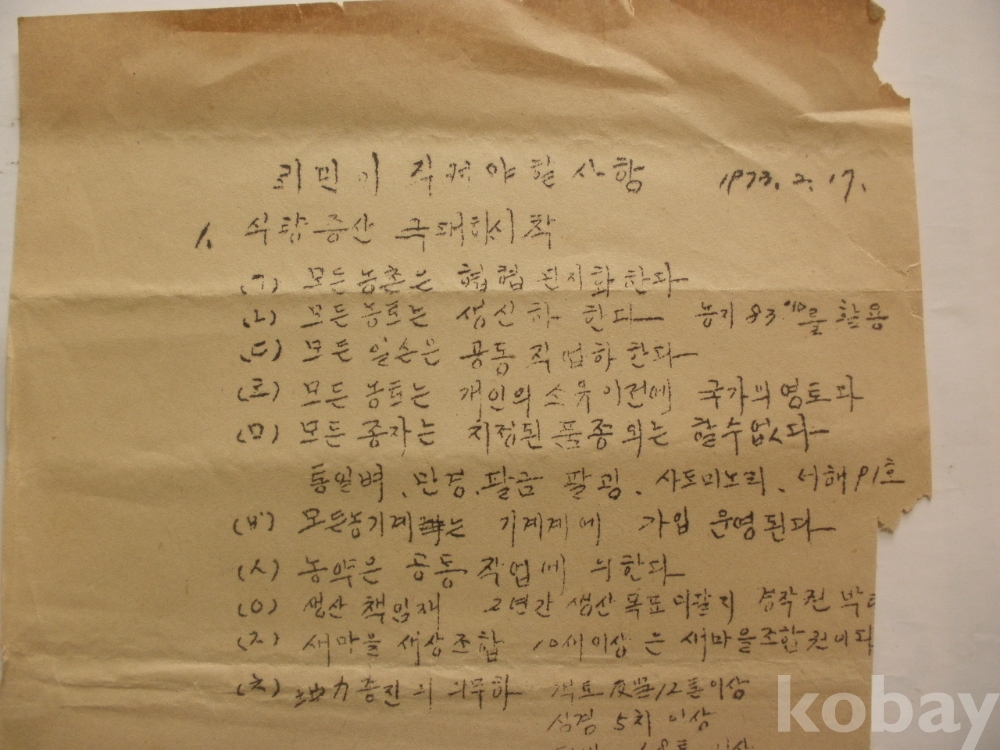 리민이 직켜야할 사항 1973. 2. 17.
1. 식량증산 극대화시책
(ㄱ) 모든농촌은 협업 단지화 한다
(ㄴ) 모든농토는 생산화 한다 농지 83%를 활용
(ㄷ) 모든 일손은 공동 작업화 한다
(ㄹ) 모든 농토는 개인의 소유 이전에 국가의 영토다
(ㅁ) 모든 종자는 지정된 품종 외는 할수없다
통일벼, 만경, 팔금 팔굉, 사도미노리, 서해91호
(ㅂ) 모든농기계는 기계계에 가입 운영된다
(ㅅ) 농약은 공동 작업에 의한다
(ㅇ) 생산 책임제 2년간 생산목표미달자 경작권 박
(ㅈ) 새마을 생산조합 10세이상은 새마을조합원이다
(ㅊ) 地力증진의 의무화 객토 反当12톤이상
심경 5치 이상
이상
kobay